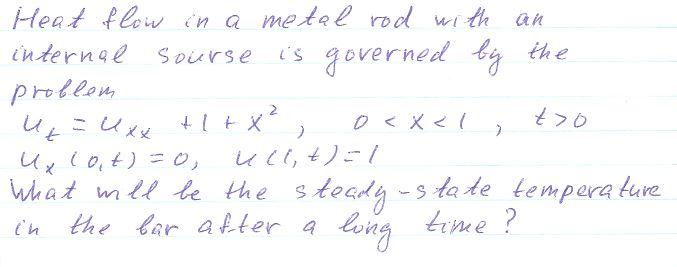 Heat flow in a metal rod with an
internal sourse is governed by the
problem
u_t = u_xx + 1 + x², 0 < x < 1, t > 0
u_x (0, t) = 0, u (1, t) = 1
What will be the steady-state temperature
in the bar after a long time?